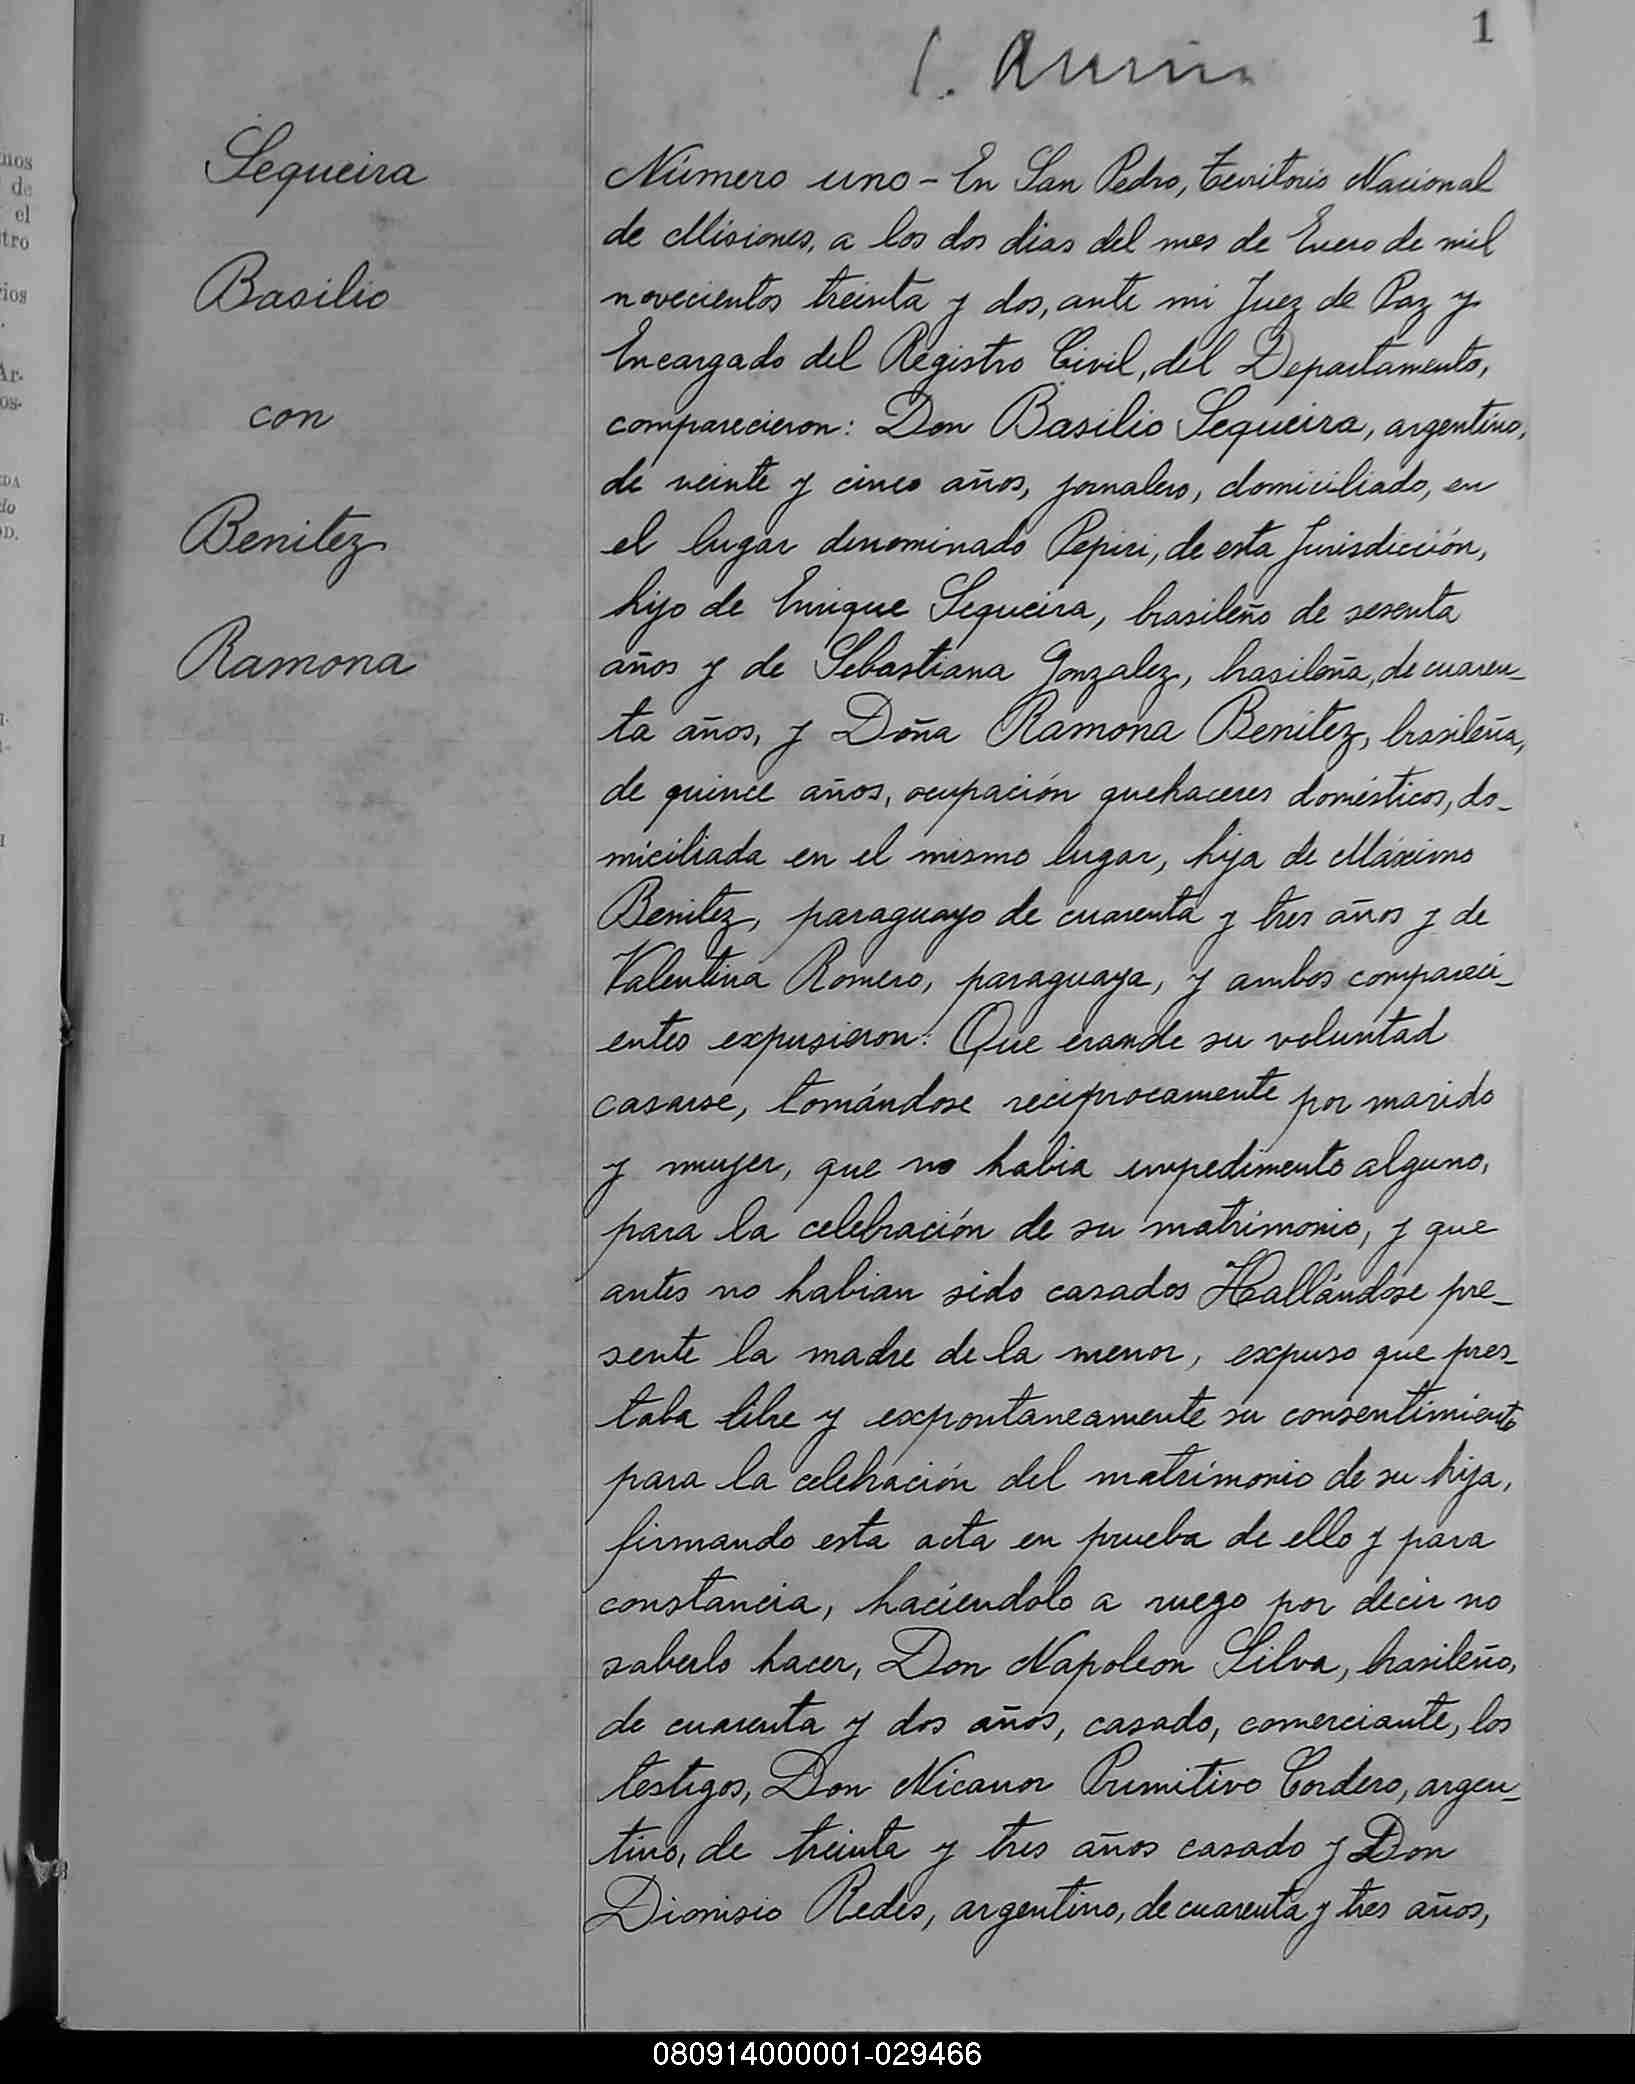 1
Sequeira
Basilio
con
Benitez
Ramona
Número uno - En San Pedro, Territorio Nacional
de Misiones, a los dos dias del mes de Enero de mil
novecientos treinta y dos, ante mi Juez de Paz y
Encargado del Registro Civil, del Departamento,
comparecieron: Don Basilio Sequeira, argentino,
de veinte y cinco años, jornalero, domiciliado, en
el lugar denominado Pepiri, de esta Jurisdicción,
hijo de Enrique Sequeira, brasileño de sesenta
años y de Sebastiana Gonzalez, brasileña, de cuaren-
ta años, y Doña Ramona Benitez, brasileña,
de quince años, ocupación quehaceres domésticos, do-
miciliada en el mismo lugar, hija de Máximo
Benitez, paraguayo de cuarenta y tres años y de
Valentina Romero, paraguaya, y ambos compareci-
entes expusieron: Que erande su voluntad
casarse, tomándose reciprocamente por marido
y mujer, que no habia impedimento alguno,
para la celebración de su matrimonio, y que
antes no habian sido casados Hallándose pre-
sente la madre de la menor, expuso que pres-
taba libre y expontaneamente su consentimiento
para la celebración del matrimonio de su hija,
firmando esta acta en prueba de ello y para
constancia, haciendolo a ruego por decir no
saberlo hacer, Don Napoleon Silva, brasileño,
de cuarenta y dos años, casado, comerciante, los
testigos, Don Nicanor Primitivo Cordero, argen-
tino, de treinta y tres años casado y Don
Dionisio Redes, argentino, de cuarenta y tres años,
nos
de
el
tro
rios
Ar-
os-
EDA
do
OD.
080914000001-029466